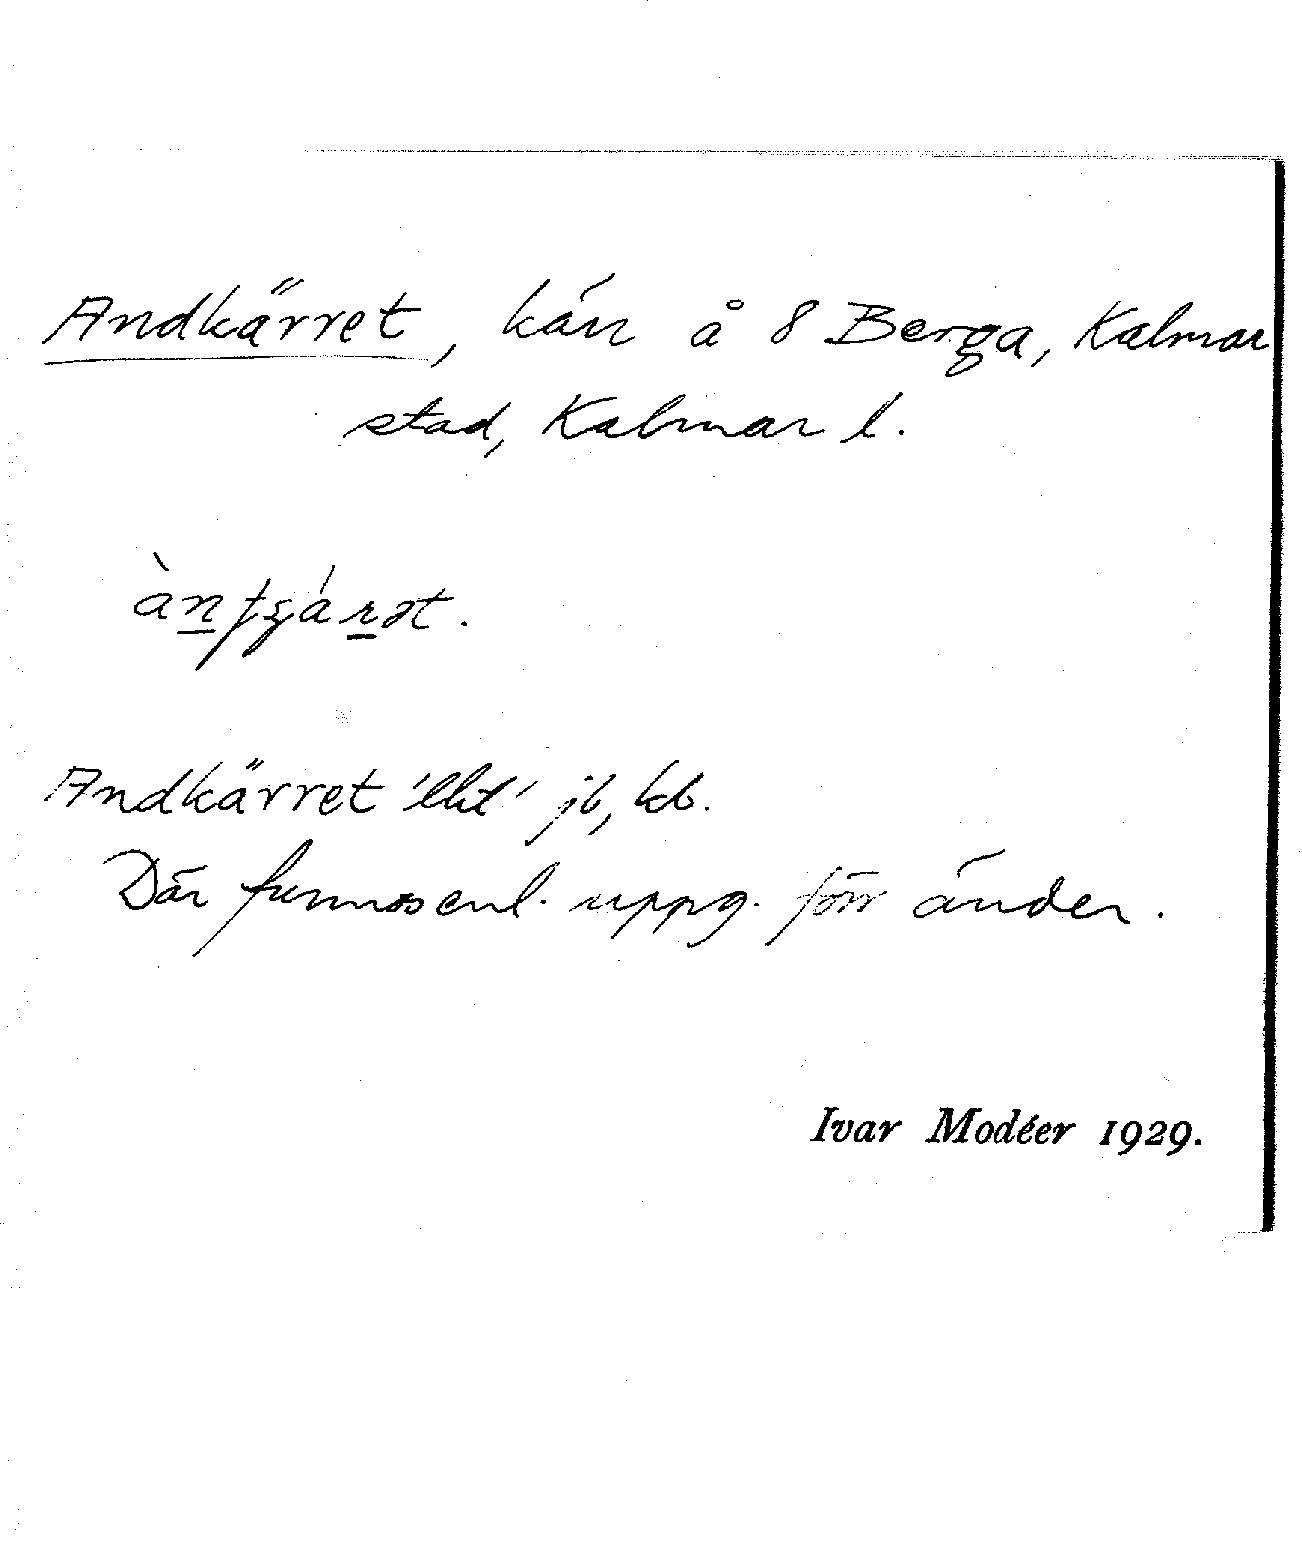 Andkärret, kärr å 8 Berga, Kalmar
stad, Kalmar l.
Andkärret jb, kb.
Där funnos enl. uppg. förr änder.
Ivar Modéer 1929.